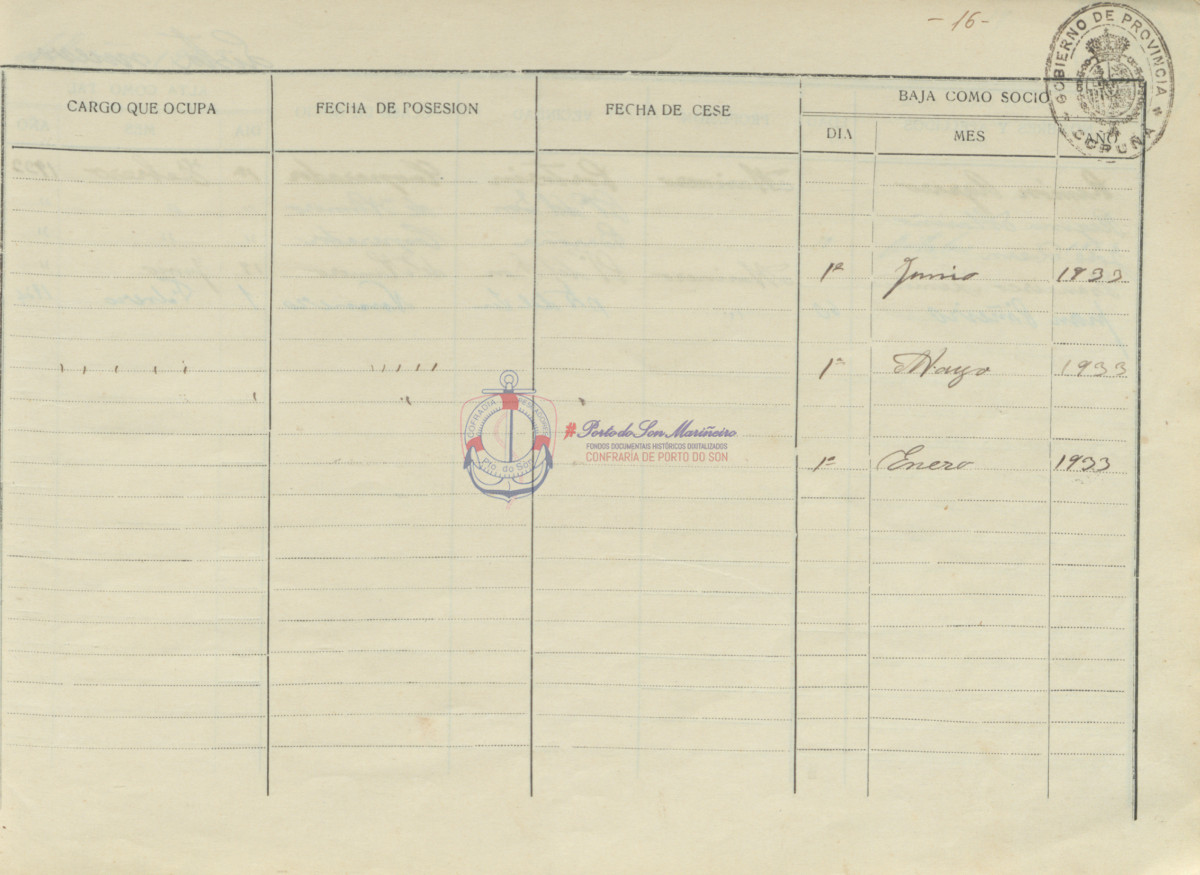 - 16 -
GOBIERNO DE PROVINCIA
* CORUÑA *
CARGO QUE OCUPA FECHA DE POSESION FECHA DE CESE BAJA COMO SOCIO
DIA MES AÑO
1º Junio 1933
1º Mayo 1933
COFRADIA PESCADORES
Pto. do Son
#Porto do Son Mariñeiro
FONDOS DOCUMENTAIS HISTÓRICOS DIGITALIZADOS
CONFRARÍA DE PORTO DO SON
1º Enero 1933